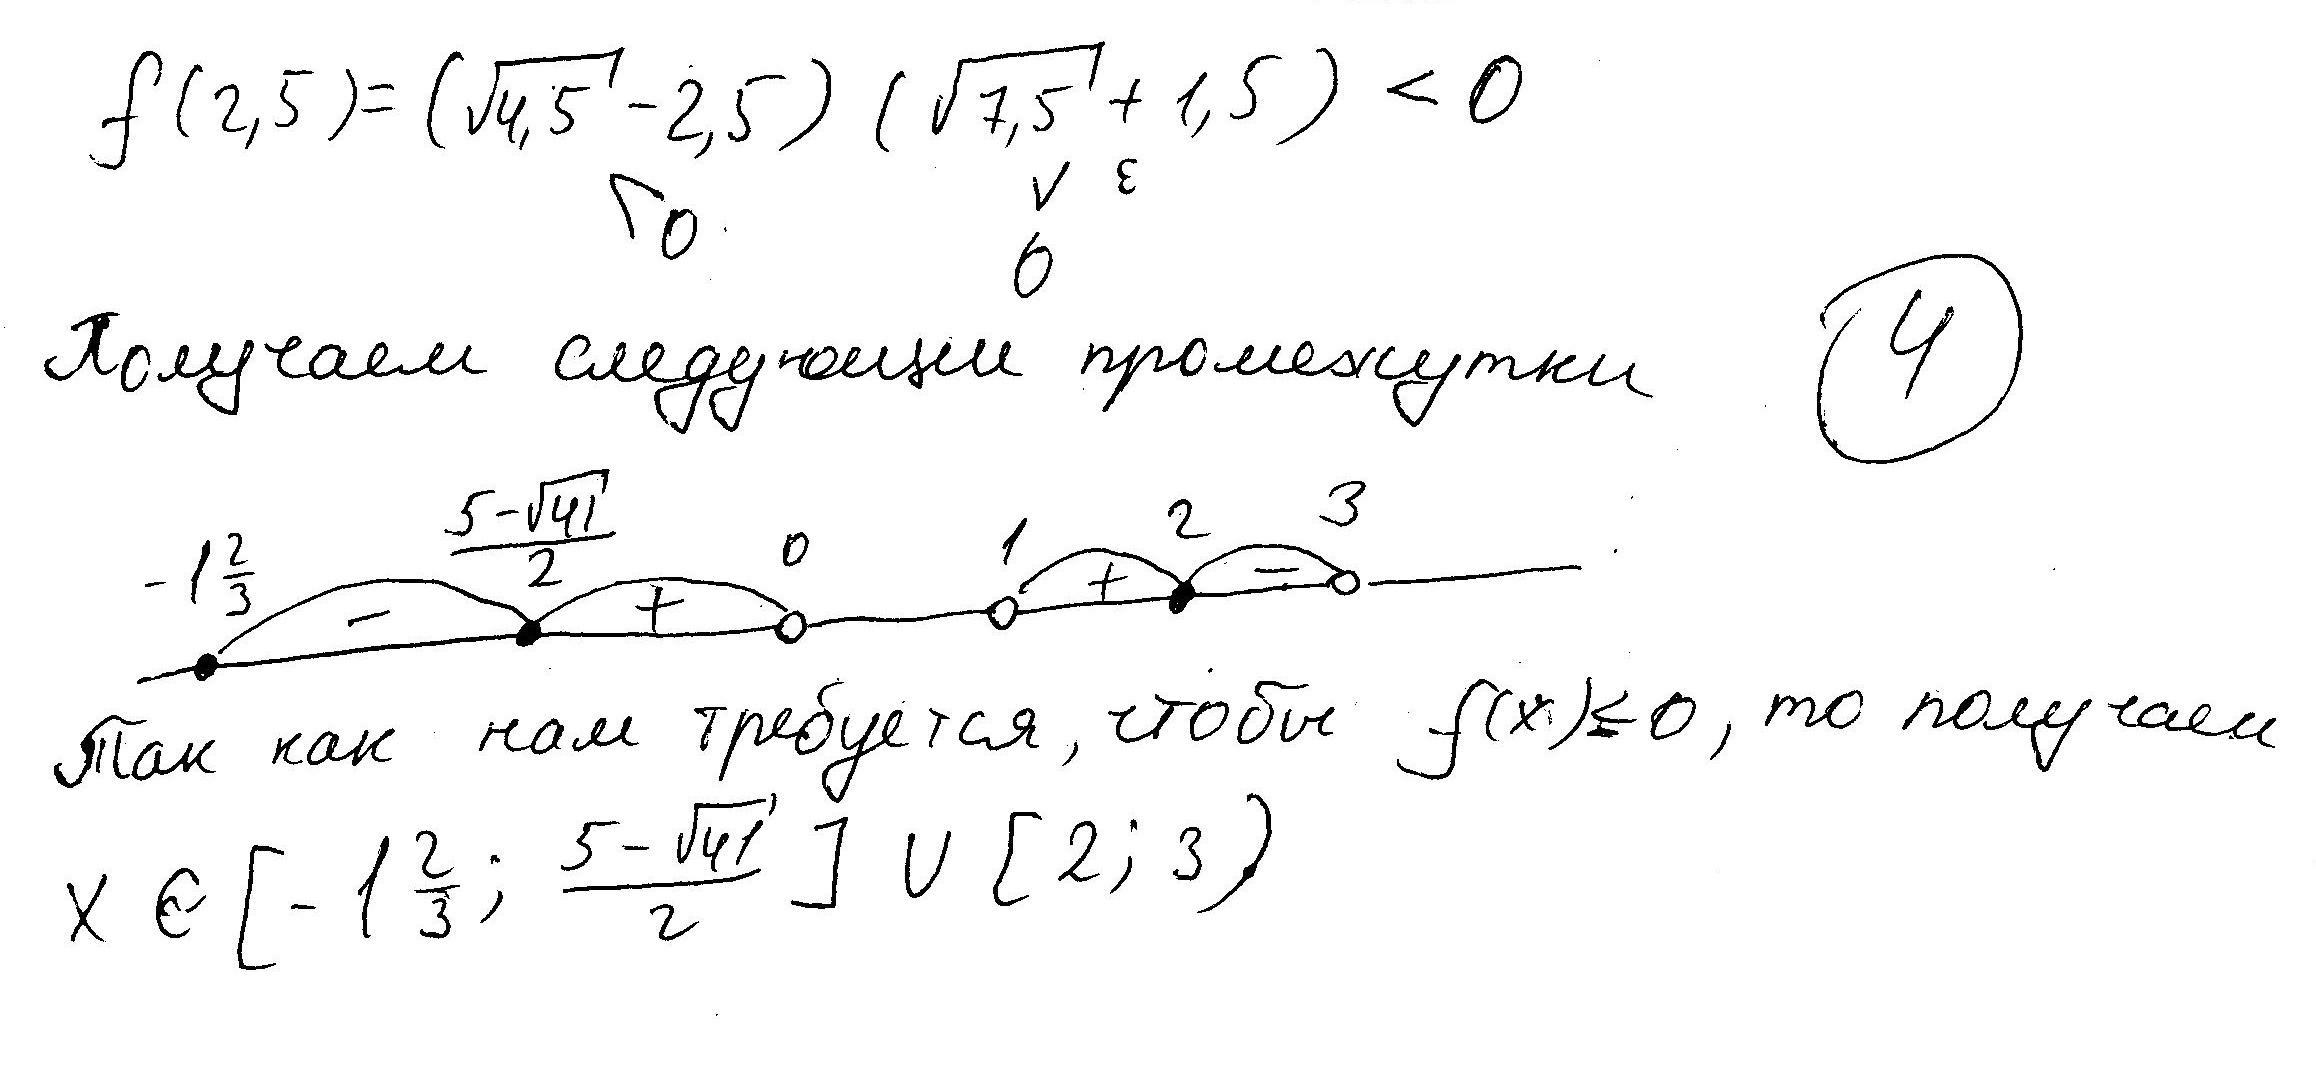 f(2,5)=(√4,5 -2,5) (√7,5 + 1,5) < 0
0
V ε
0
Получаем следующии промежутки
4
-1 2/3 (5-√41)/2 0 1 2 3
- + + -
Так как нам требуется, чтобы f(x)≤0, то получаем
x ∈ [-1 2/3; (5-√41)/2] ∪ [2; 3)